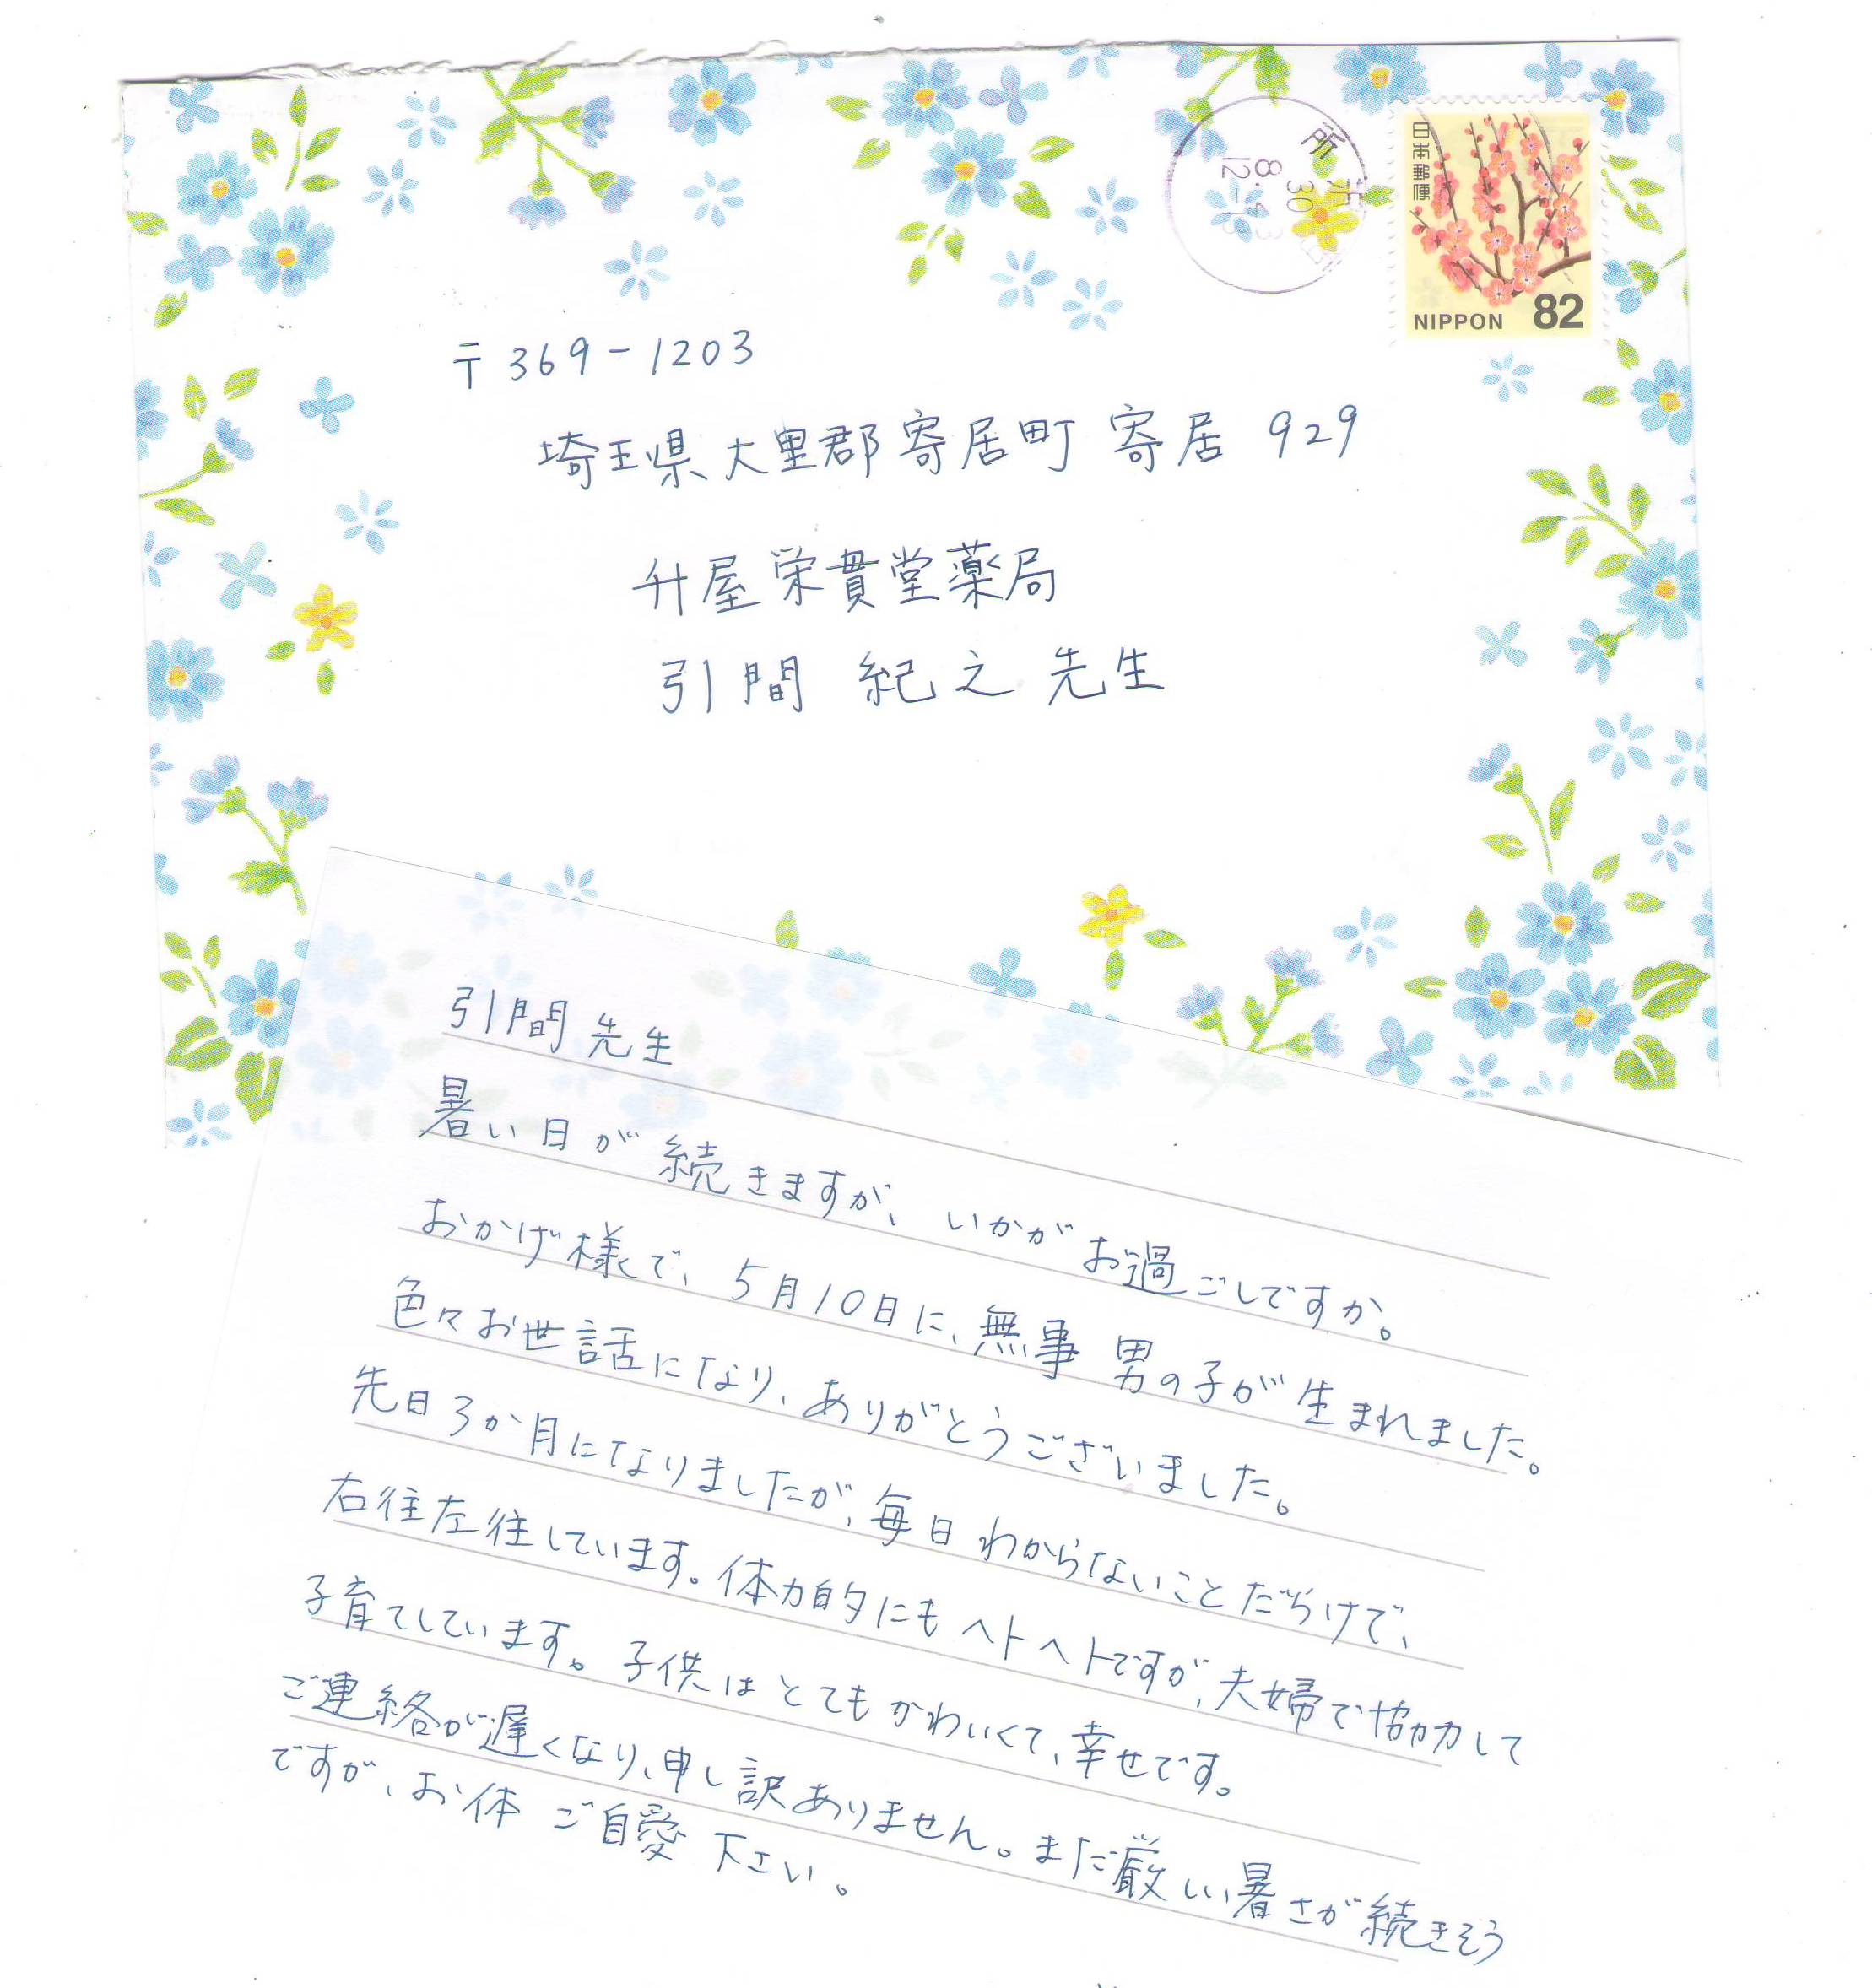 日本郵便
NIPPON 82
所
30
8
12-18
〒369-1203
埼玉県大里郡寄居町寄居929
升屋栄貫堂薬局
引間 紀之 先生
引間先生
暑い日が続きますが、いかがお過ごしですか。
おかげ様で、5月10日に、無事 男の子が生まれました。
色々お世話になり、ありがとうございました。
先日3か月になりましたが、毎日わからないことだらけで、
右往左往しています。体力的にもヘトヘトですが、夫婦で協力して
子育てしています。子供はとてもかわいくて、幸せです。
ご連絡が遅くなり、申し訳ありません。まだ厳しい暑さが続きそう
ですが、お体 ご自愛 下さい。